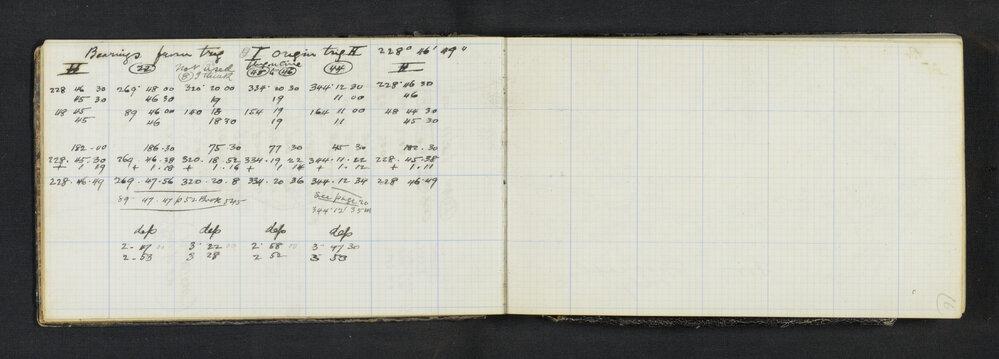 Bearings from trig I origin trig II 228° 46' 49"
II (22) Not used (48) & (46) (44) II
(B) I think
228 46 30 269 48 00 320 20 00 334 20 30 344 12 00 228 46 30
45 30 46 30 19 19 11 00 46
48 45 89 46 00 140 18 154 19 164 11 00 48 44 30
45 46 18 30 19 11 45 30
182 .00 186.30 75.30 77 30 45 30 182.30
228.45.30 269 46.38 320.18.52 334.19.22 344.11.22 228.45.38
+ 1 19 + 1.18 + 1.16 + 1 14 + 1.12 + 1.11
228.46.49 269.47.56 320.20.8 334.20 36 344.12 34 228 46.49
89 47.47 p52 Book 545 See page 20
344.12' 35
dep dep dep dep
2-47 00 3 22 00 2 58 00 3 47 30
2-53 3 28 2 52 3 53
16